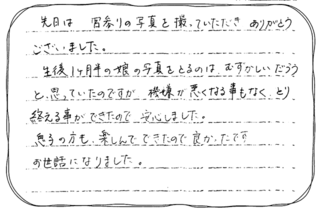 先日は 宮参りの写真を撮っていただき ありがとう
ございました。
生後1ヶ月半の娘の写真をとるのは むずかしいだろう
と思っていたのですが 機嫌が悪くなる事もなく とり
終える事ができたので 安心しました。
息子の方も、楽しんでできたので良かったです
お世話になりました。